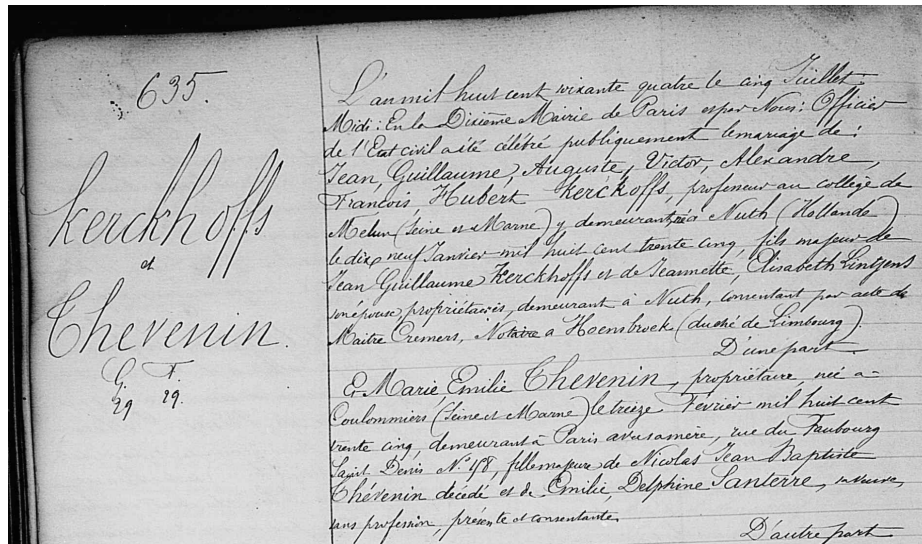 635.
Kerckhoffs
et
Thevenin.
G. F.
29 29.
L'an mil huit cent soixante quatre le cinq Juillet
Midi: En la Dixième Mairie de Paris et par Nous: Officier
de l'Etat civil a été célébré publiquement le mariage de:
Jean, Guillaume, Auguste, Victor, Alexandre,
François Hubert Kerckoffs, professeur au collège de
Melun (Seine et Marne) y demeurant, né à Nuth (Hollande)
le dix neuf Janvier mil huit cent trente cinq, fils majeur de
Jean Guillaume Kerckhoffs et de Jeannette, Elisabeth Lintjens
son épouse, propriétaires, demeurant à Nuth, consentant par acte de
Maitre Cremers, Notaire a Hoensbroek (duché de Limbourg).
D'une part.
Et Marie, Emilie Thevenin, propriétaire, née a
Coulommiers (Seine et Marne) le treize Février mil huit cent
trente cinq, demeurant a Paris avec sa mère, rue du Faubourg
Saint Denis N.º 48, fille majeure de Nicolas Jean Baptiste
Thévenin décédé et de Emilie, Delphine Santerre, sa veuve,
sans profession, présente et consentante,
D'autre part